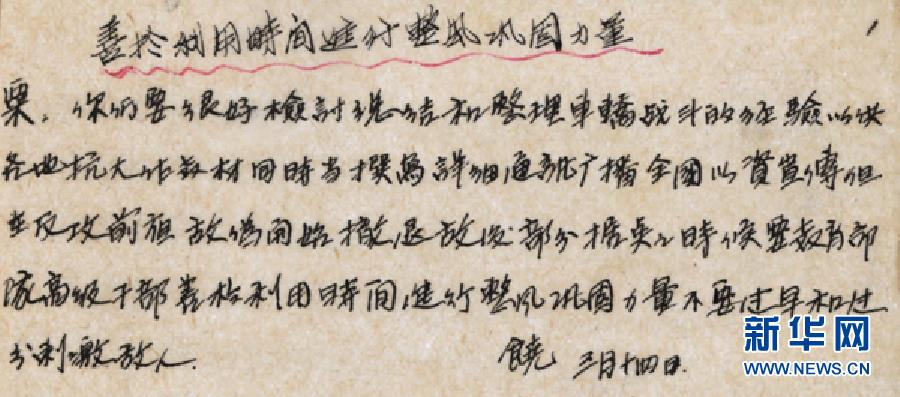 善於利用時間進行整风巩固力量
粟，你们要很好檢討总结和整理車轎战斗的经驗以供
各地抗大作教材同時当撰為詳细通訊广播全國以資宣傳但
在反攻前夜敌伪開始撤退敌後部分据点之時候要教育部
隊高级干部善於利用時間進行整风巩固力量不要过早和过
分刺激敌人.
饒 三月十四日.
新华网
WWW.NEWS.CN